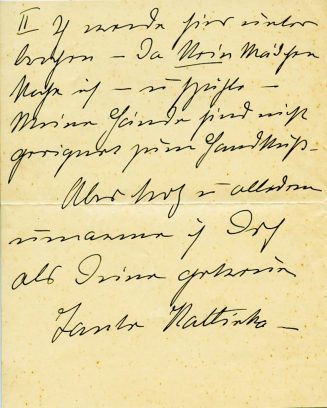 II Ich werde hier unter
brochen – Da Kein Mädchen
Habe ich – u spühle –
Meine Hände sind nicht
geeignet zum Handkuß –
Aber trotz u alledem
umarme ich Dich
als Deine getreue
Tante Kattinka –